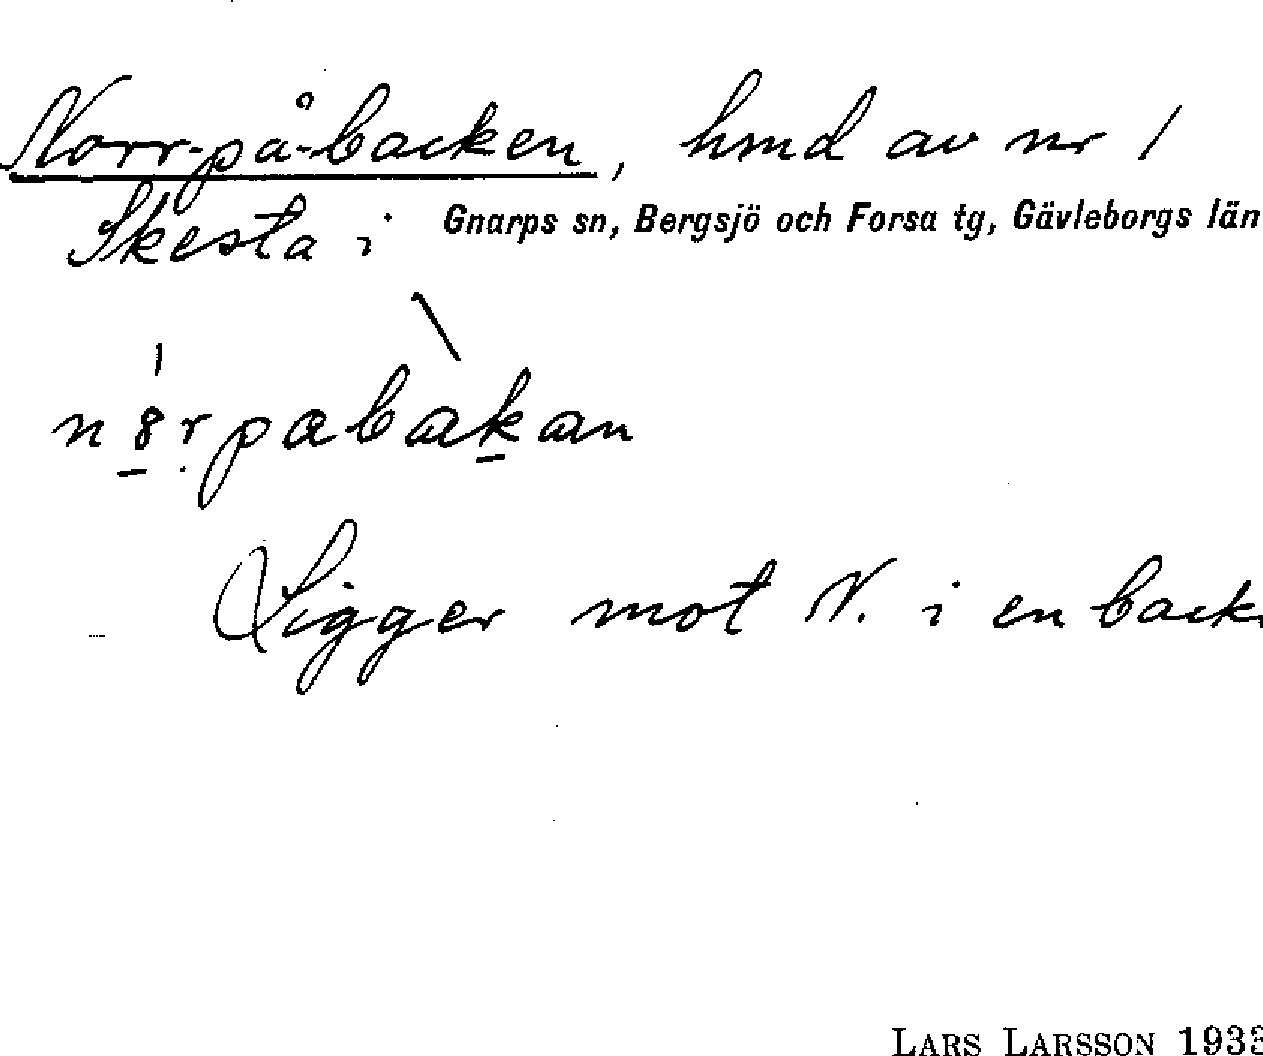 Norr-på-backen, hmd av nr 1
Skesta i Gnarps sn, Bergsjö och Forsa tg, Gävleborgs län
n8rpabakan
Ligger mot N. i en back
LARS LARSSON 193